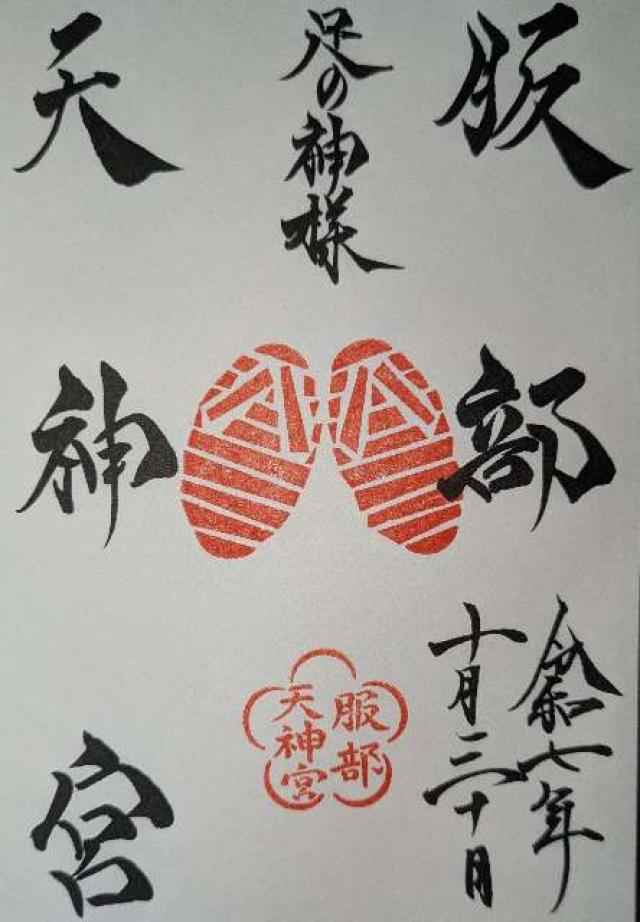 服部
足の神様
天神宮
服部
天神宮
令和七年
十月三十日